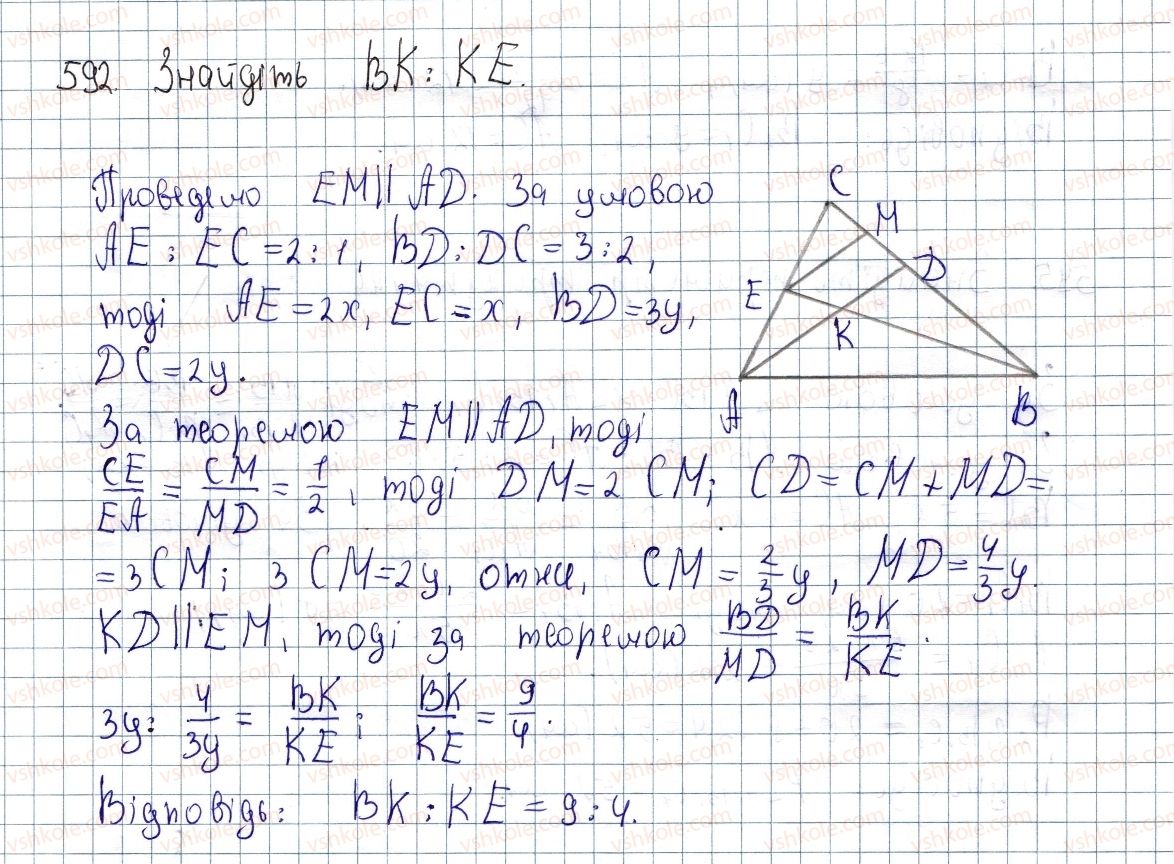 592. Знайдіть BK : KE.
Проведемо EM || AD. За умовою
AE : EC = 2 : 1, BD : DC = 3 : 2,
тоді AE = 2x, EC = x, BD = 3y,
DC = 2y.
За теоремою EM || AD, тоді
CE/EA = CM/MD = 1/2, тоді DM = 2 CM; CD = CM + MD =
= 3 CM; 3 CM = 2y, отже, CM = 2/3 y, MD = 4/3 y.
KD || EM, тоді за теоремою BD/MD = BK/KE.
3y : 4/3y = BK/KE; BK/KE = 9/4.
Відповідь: BK : KE = 9 : 4.
C
M
D
E
K
A
B
vshkole.com